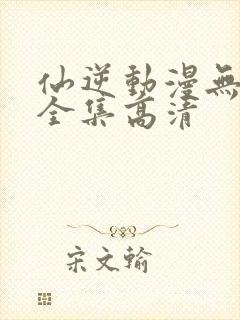 仙逆動漫無
全集高清
宋文翰